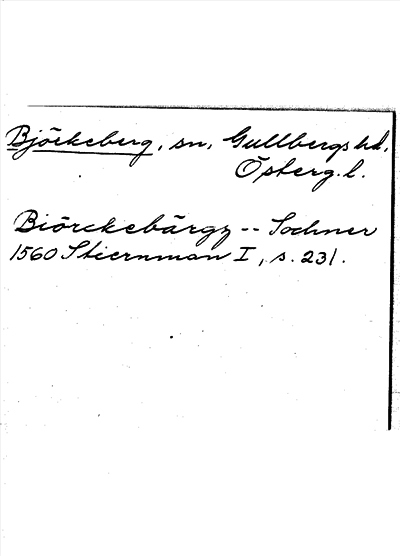 Björkeberg, sn, Gullbergs hd,
Österg. l.
Biörckebärgz -- Sochner
1560 Stiernman I, s. 231.